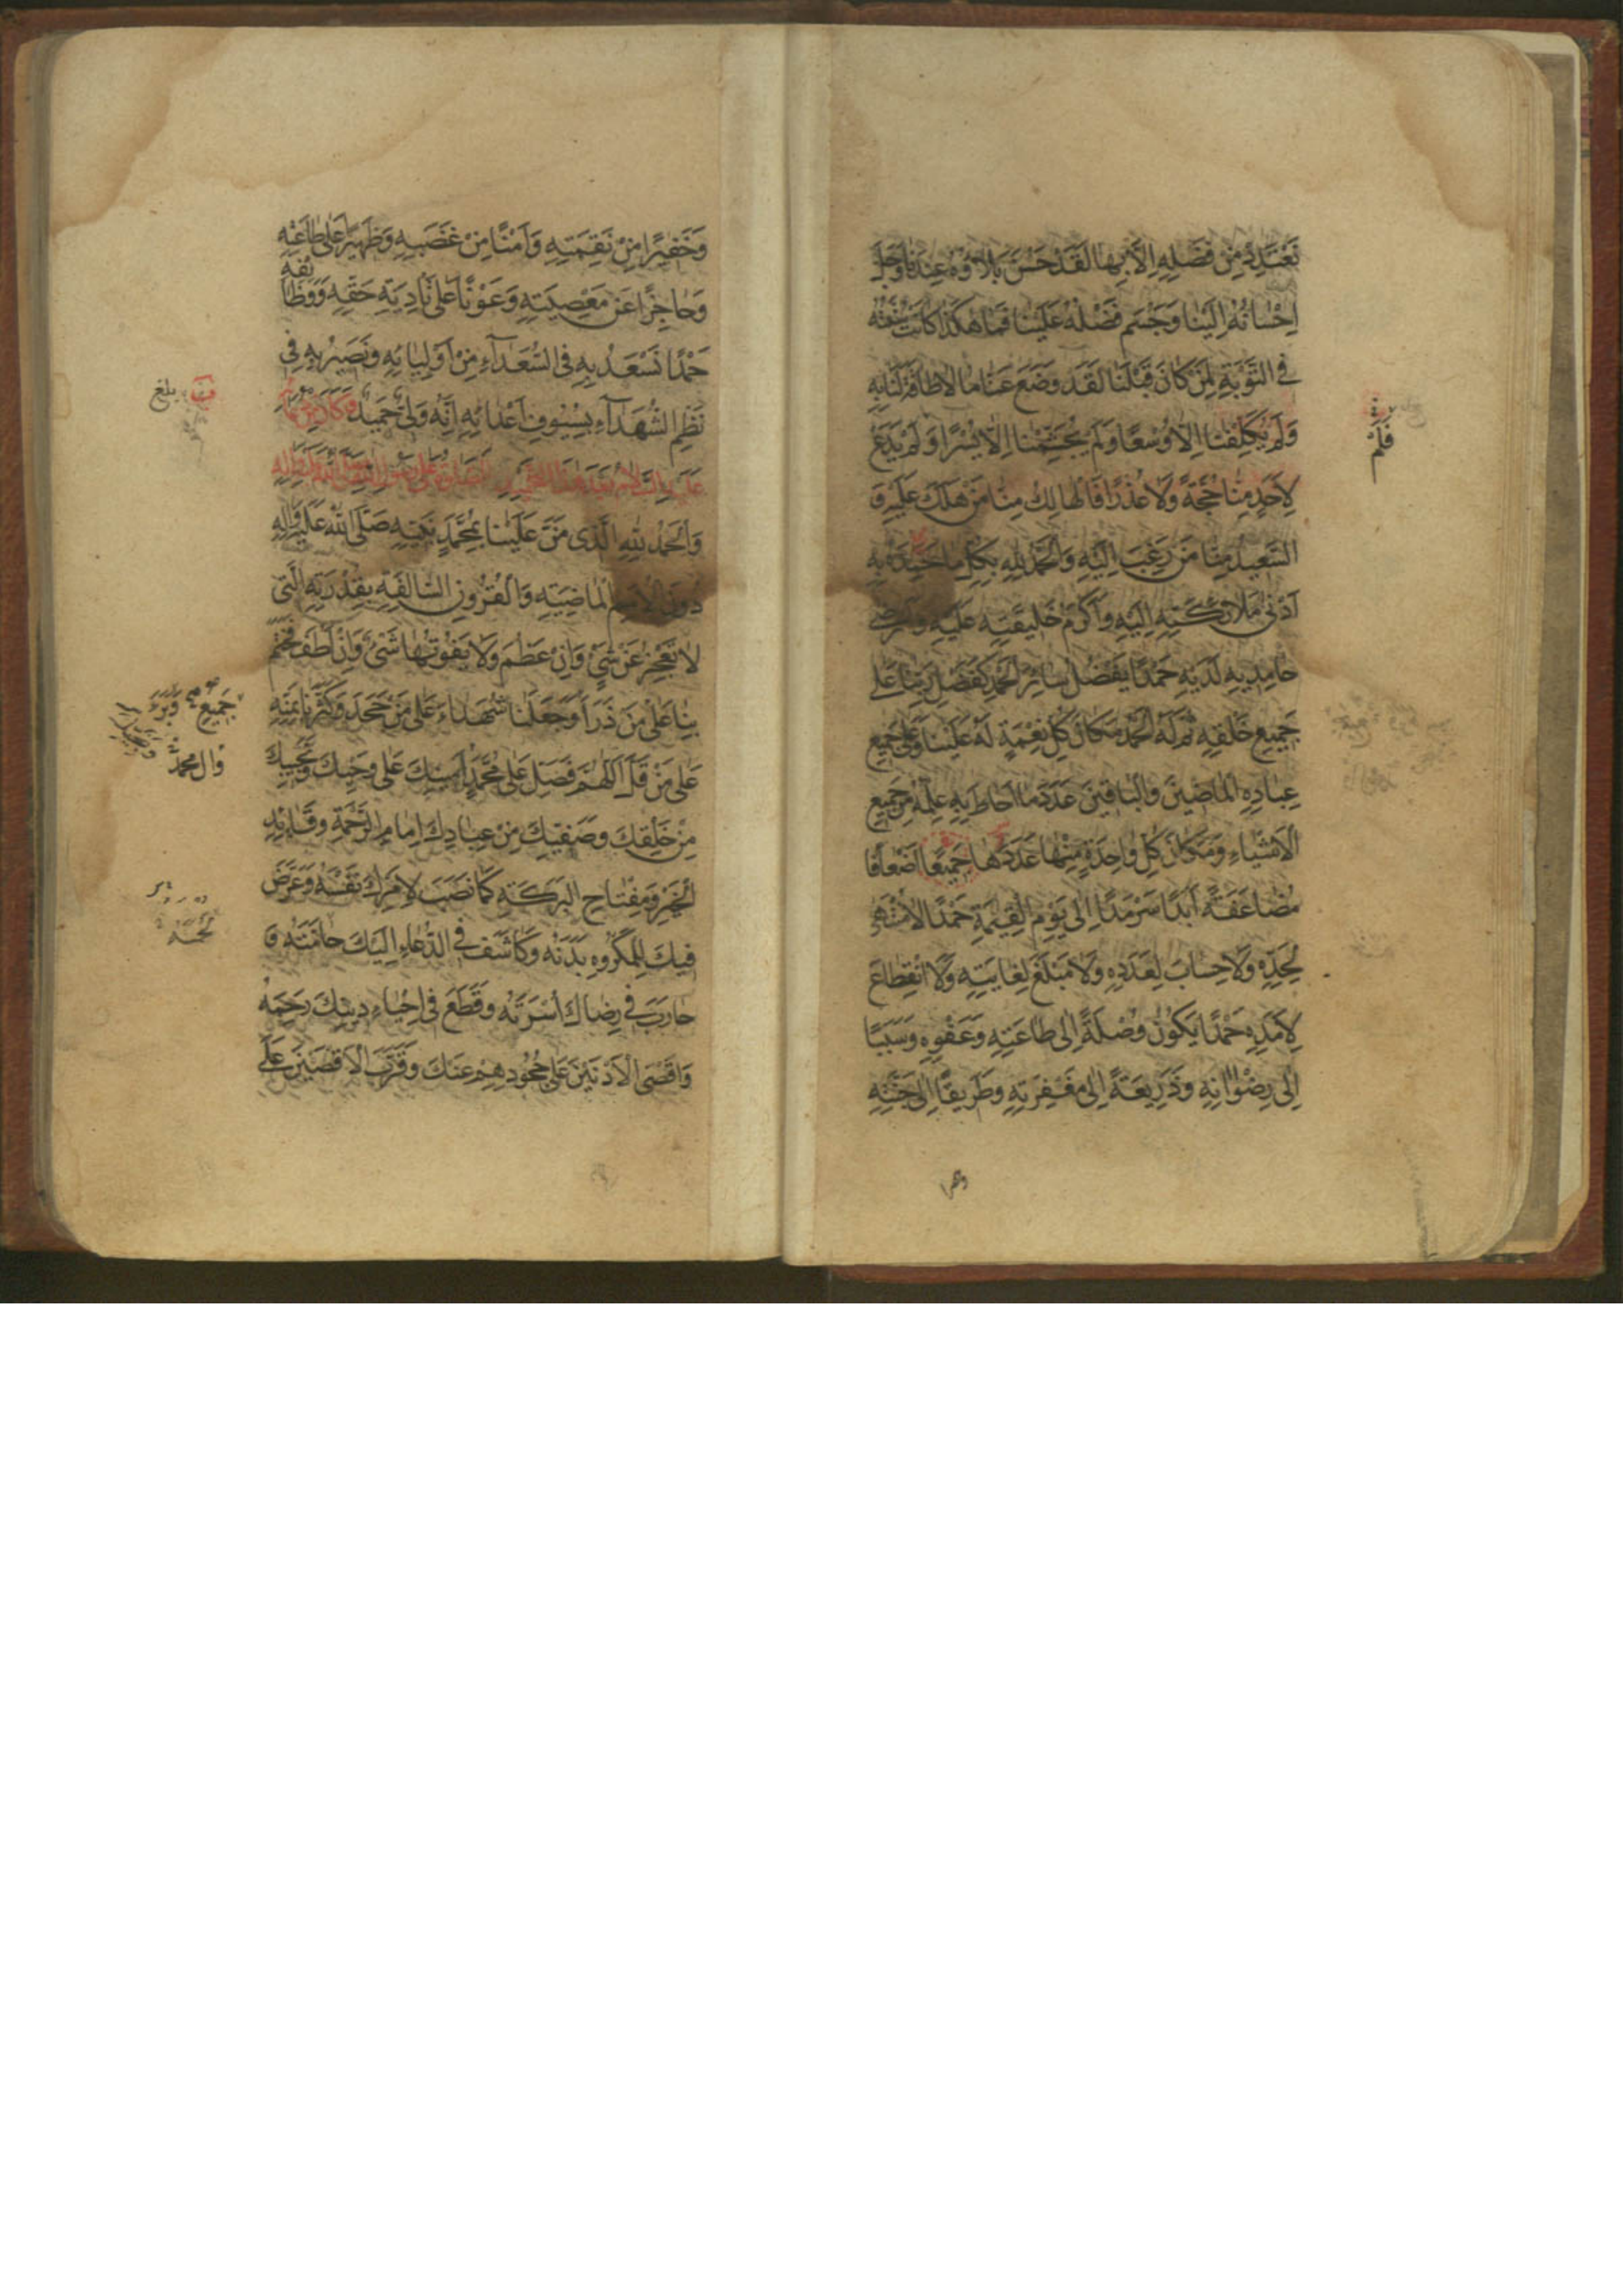 نَعْتَدِدْ مِنْ فَضْلِهِ اِلَّا بِهَا لَقَدْ حَسُنَ بَلَاؤُهُ عِنْدَنَا وَجَلَّ
اِحْسَانُهُ اِلَيْنَا وَجَسُمَ فَضْلُهُ عَلَيْنَا فَمَا هٰكَذَا كَانَتْ سُنَّتُهُ
فِي التَّوْبَةِ لِمَنْ كَانَ قَبْلَنَا لَقَدْ وَضَعَ عَنَّا مَا لَا طَاقَةَ لَنَا بِهِ
وَلَمْ يُكَلِّفْنَا اِلَّا وُسْعًا وَلَمْ يُجَشِّمْنَا اِلَّا يُسْرًا وَلَمْ يَدَعْ
لِاَحَدٍ مِنَّا حُجَّةً وَلَا عُذْرًا فَالْهَالِكُ مِنَّا مَنْ هَلَكَ عَلَيْهِ وَ
السَّعِيدُ مِنَّا مَنْ رَغِبَ اِلَيْهِ وَالْحَمْدُ لِلّٰهِ بِكُلِّ مَا حَمِدَهُ بِهِ
اَدْنٰى مَلَائِكَتِهِ اِلَيْهِ وَاَكْرَمُ خَلِيقَتِهِ عَلَيْهِ وَاَرْضٰى
حَامِدِيهِ لَدَيْهِ حَمْدًا يَفْضُلُ سَائِرَ الْحَمْدِ كَفَضْلِ رَبِّنَا عَلٰى
جَمِيعِ خَلْقِهِ ثُمَّ لَهُ الْحَمْدُ مَكَانَ كُلِّ نِعْمَةٍ لَهُ عَلَيْنَا وَعَلٰى جَمِيعِ
عِبَادِهِ الْمَاضِينَ وَالْبَاقِينَ عَدَدَ مَا اَحَاطَ بِهِ عِلْمُهُ مِنْ جَمِيعِ
الْاَشْيَاءِ وَمَكَانَ كُلِّ وَاحِدَةٍ مِنْهَا عَدَدُهَا جَمِيعًا اَضْعَافًا
مُضَاعَفَةً اَبَدًا سَرْمَدًا اِلٰى يَوْمِ الْقِيٰمَةِ حَمْدًا لَا مُنْتَهٰى
لِحَدِّهِ وَلَا حِسَابَ لِعَدَدِهِ وَلَا مَبْلَغَ لِغَايَتِهِ وَلَا انْقِطَاعَ
لِاَمَدِهِ حَمْدًا يَكُونُ وُصْلَةً اِلٰى طَاعَتِهِ وَعَفْوِهِ وَسَبَبًا
اِلٰى رِضْوَانِهِ وَذَرِيعَةً اِلٰى مَغْفِرَتِهِ وَطَرِيقًا اِلٰى جَنَّتِهِ
وَخَفِيرًا مِنْ نَقِمَتِهِ وَاَمْنًا مِنْ غَضَبِهِ وَظَهِيرًا عَلٰى طَاعَتِهِ
وَحَاجِزًا عَنْ مَعْصِيَتِهِ وَعَوْنًا عَلٰى تَأْدِيَةِ حَقِّهِ وَوَظَائِفِهِ
حَمْدًا نَسْعَدُ بِهِ فِي السُّعَدَآءِ مِنْ اَوْلِيَائِهِ وَنَصِيرُ بِهِ فِي
نَظْمِ الشُّهَدَآءِ بِسُيُوفِ اَعْدَائِهِ اِنَّهُ وَلِيٌّ حَمِيدٌ وَكَانَ مِنْ دُعَائِهِ
عَلَيْهِ السَّلَامُ بَعْدَ هٰذَا التَّحْمِيدِ الصَّلٰوةُ عَلٰى رَسُولِ اللّٰهِ صَلَّى اللّٰهُ عَلَيْهِ وَاٰلِهِ
وَالْحَمْدُ لِلّٰهِ الَّذِي مَنَّ عَلَيْنَا بِمُحَمَّدٍ نَبِيِّهِ صَلَّى اللّٰهُ عَلَيْهِ وَاٰلِهِ
دُونَ الْاُمَمِ الْمَاضِيَةِ وَالْقُرُونِ السَّالِفَةِ بِقُدْرَتِهِ الَّتِي
لَا تَعْجِزُ عَنْ شَيْءٍ وَاِنْ عَظُمَ وَلَا يَفُوتُهَا شَيْءٌ وَاِنْ لَطُفَ فَخَتَمَ
بِنَا عَلٰى مَنْ ذَرَأَ وَجَعَلَنَا شُهَدَاءَ عَلٰى مَنْ جَحَدَ وَكَثَّرَنَا بِمَنِّهِ
عَلٰى مَنْ قَلَّ اَللّٰهُمَّ فَصَلِّ عَلٰى مُحَمَّدٍ اَمِينِكَ عَلٰى وَحْيِكَ وَنَجِيبِكَ
مِنْ خَلْقِكَ وَصَفِيِّكَ مِنْ عِبَادِكَ اِمَامِ الرَّحْمَةِ وَقَائِدِ
الْخَيْرِ وَمِفْتَاحِ الْبَرَكَةِ كَمَا نَصَبَ لِاَمْرِكَ نَفْسَهُ وَعَرَّضَ
فِيكَ لِلْمَكْرُوهِ بَدَنَهُ وَكَاشَفَ فِي الدُّعَاءِ اِلَيْكَ حَامَّتَهُ وَ
حَارَبَ فِي رِضَاكَ اُسْرَتَهُ وَقَطَعَ فِي اِحْيَاءِ دِينِكَ رَحِمَهُ
وَاَقْصَى الْاَدْنَيْنَ عَلٰى جُحُودِهِمْ عَنْكَ وَقَرَّبَ الْاَقْصَيْنَ عَلٰى
فَلَمْ
بلغ
جَمِيعِ
وَاٰلِ مُحَمَّد